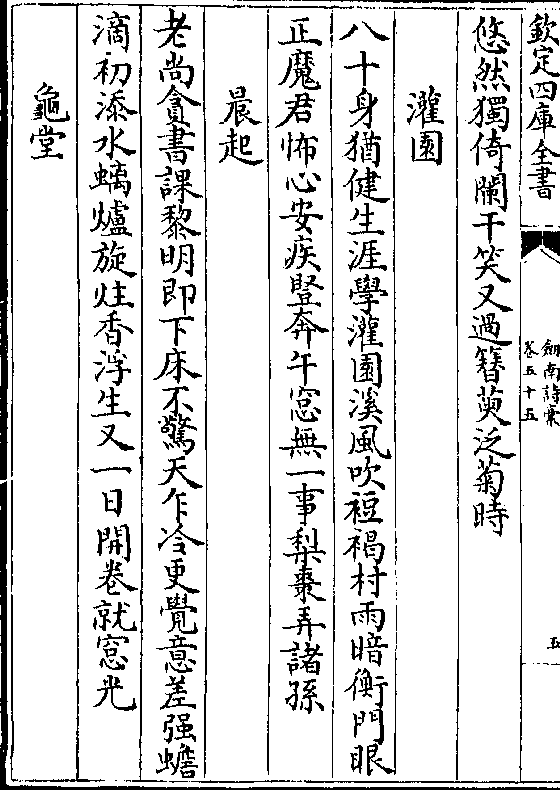 欽定四庫全書
劍南詩稾
卷五十五
五
悠然獨倚闌干笑又過簪萸泛菊時
灌園
八十身猶健生涯學灌園溪風吹裋褐村雨暗衡門眼
正魔君怖心安疾豎奔午窓無一事梨棗弄諸孫
晨起
老尚貪書課黎明即下床不驚天乍冷更覺意差强蟾
滴初添水螭爐旋炷香浮生又一日開卷就窓光
龜堂